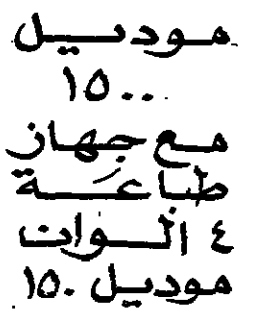 موديل
١٥٠٠
مع جهاز
طباعة
٤ الوان
موديل ١٥٠